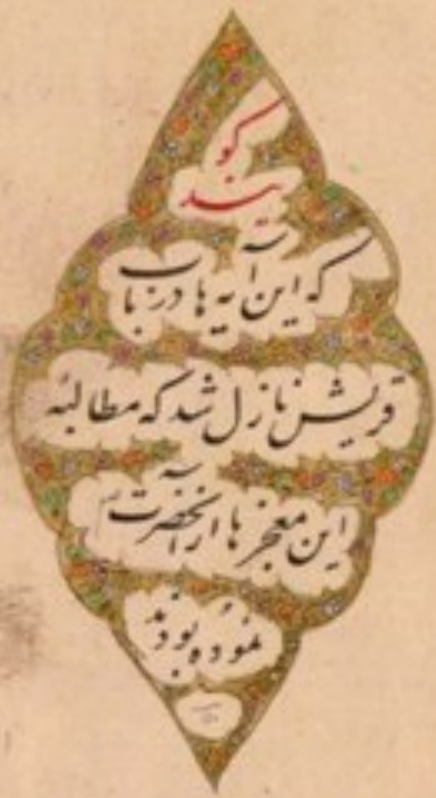 گو
یند
که این آیه ها در باب
قریش نازل شد که مطالبهٔ
این معجزها از آنحضرت
نموده بودند